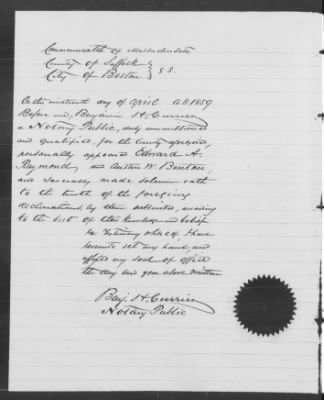 Commonwealth of Massachusetts
County of Suffolk
City of Boston } S S.
On this nineteenth day of April A D 1859
Before me, Benjamin H. Currier
a Notary Public, duly commissioned
and qualified, for the County aforesaid,
personally appeared Edward A.
Raymond, and Austin W. Benton,
and severally made solemn oath
to the truth of the foregoing
declaration by them subscribed, according
to the best of their knowledge and belief.
In testimony whereof I have
hereunto set my hand, and
affixed my seal of office
the day and year above written
Benj. H. Currier
Notary Public